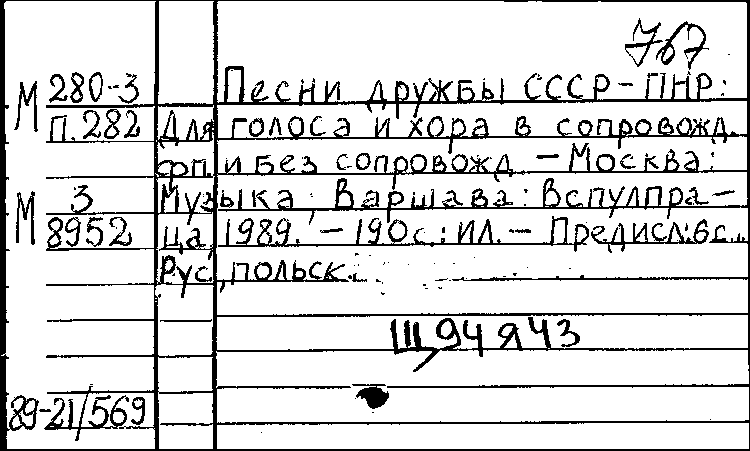 767
М 280-3 Песни дружбы СССР-ПНР:
П.282 Для голоса и хора в сопровожд.
фп. и без сопровожд. - Москва:
М 3 Музыка; Варшава: Вспулпра-
8952 ца, 1989. - 190с.: ил. - Предисл.: 6с.
Рус., польск.
Щ94я43
89-21/569